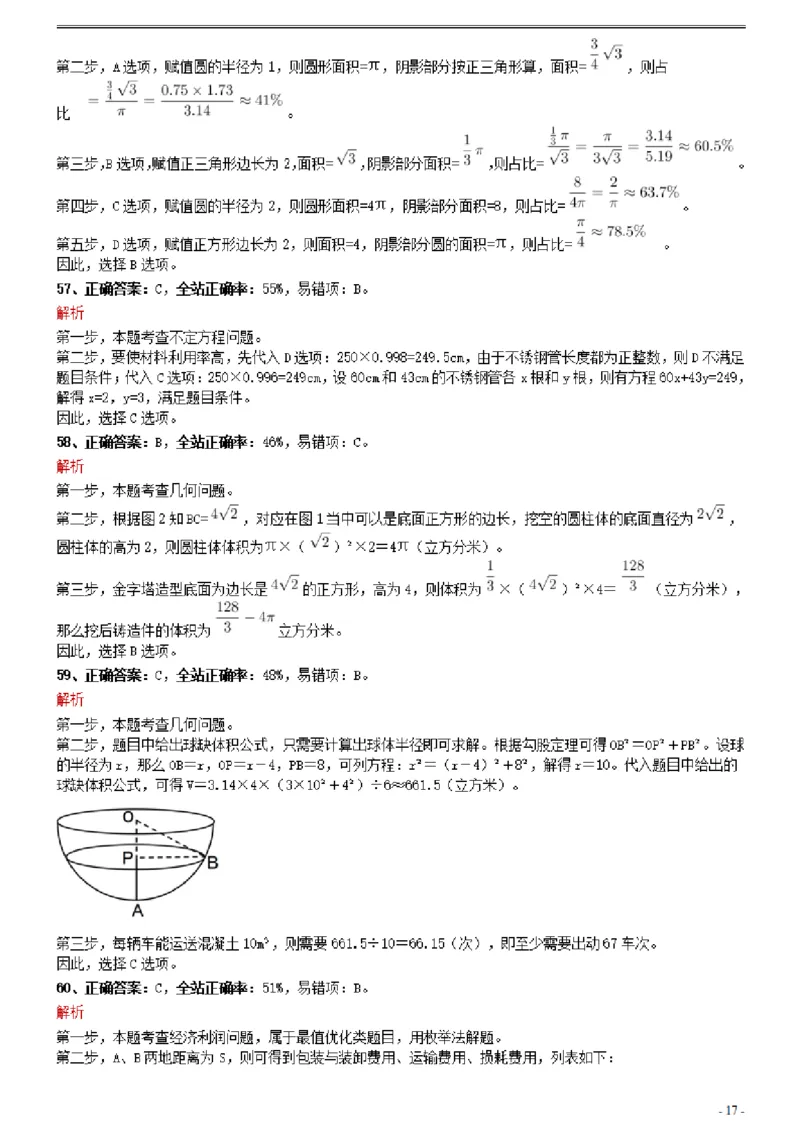 第二步，A选项，赋值圆的半径为1，则圆形面积=π，阴影部分按正三角形算，面积=3/4 √3，则占
比 = (3/4 √3)/π = (0.75×1.73)/3.14 ≈ 41%。
第三步，B选项，赋值正三角形边长为2，面积=√3，阴影部分面积=1/3 π，则占比= (1/3 π)/√3 = π/(3√3) = 3.14/5.19 ≈ 60.5%。
第四步，C选项，赋值圆的半径为2，则圆形面积=4π，阴影部分面积=8，则占比= 8/4π = 2/π ≈ 63.7%。
第五步，D选项，赋值正方形边长为2，则面积=4，阴影部分圆的面积=π，则占比= π/4 ≈ 78.5%。
因此，选择B选项。
57、正确答案：C，全站正确率：55%，易错项：B。
解析
第一步，本题考查不定方程问题。
第二步，要使材料利用率高，先代入D选项：250×0.998=249.5cm，由于不锈钢管长度都为正整数，则D不满足
题目条件；代入C选项：250×0.996=249cm，设60cm和43cm的不锈钢管各x根和y根，则有方程60x+43y=249，
解得x=2，y=3，满足题目条件。
因此，选择C选项。
58、正确答案：B，全站正确率：46%，易错项：C。
解析
第一步，本题考查几何问题。
第二步，根据图2知BC=4√2，对应在图1当中可以是底面正方形的边长，挖空的圆柱体的底面直径为2√2，
圆柱体的高为2，则圆柱体体积为π×（√2）²×2＝4π（立方分米）。
第三步，金字塔造型底面为边长是4√2的正方形，高为4，则体积为1/3×（4√2）²×4=128/3（立方分米），
那么挖后铸造件的体积为128/3 − 4π立方分米。
因此，选择B选项。
59、正确答案：C，全站正确率：48%，易错项：B。
解析
第一步，本题考查几何问题。
第二步，题目中给出球缺体积公式，只需要计算出球体半径即可求解。根据勾股定理可得OB²＝OP²＋PB²。设球
的半径为r，那么OB＝r，OP＝r－4，PB＝8，可列方程：r²＝（r－4）²＋8²，解得r＝10。代入题目中给出的
球缺体积公式，可得V＝3.14×4×（3×10²＋4²）÷6≈661.5（立方米）。
O
P
B
A
第三步，每辆车能运送混凝土10m³，则需要661.5÷10＝66.15（次），即至少需要出动67车次。
因此，选择C选项。
60、正确答案：C，全站正确率：51%，易错项：B。
解析
第一步，本题考查经济利润问题，属于最值优化类题目，用枚举法解题。
第二步，A、B两地距离为S，则可得到包装与装卸费用、运输费用、损耗费用，列表如下：
- 17 -